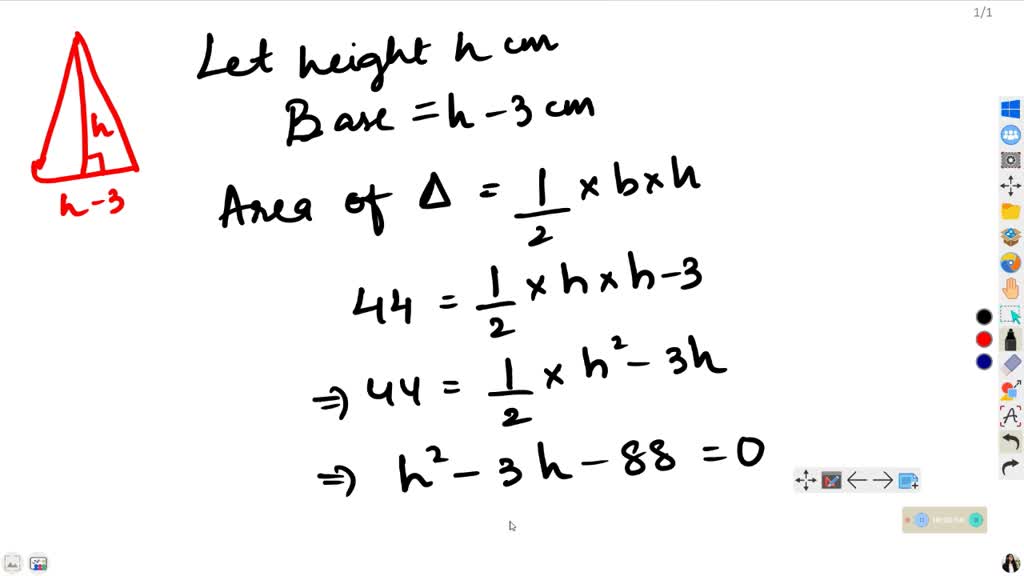 1/1
Let height h cm
Base = h - 3 cm
h
h-3
Area of Δ = 1/2 × b × h
44 = 1/2 × h × h - 3
⇒ 44 = 1/2 × h² - 3h
⇒ h² - 3h - 88 = 0